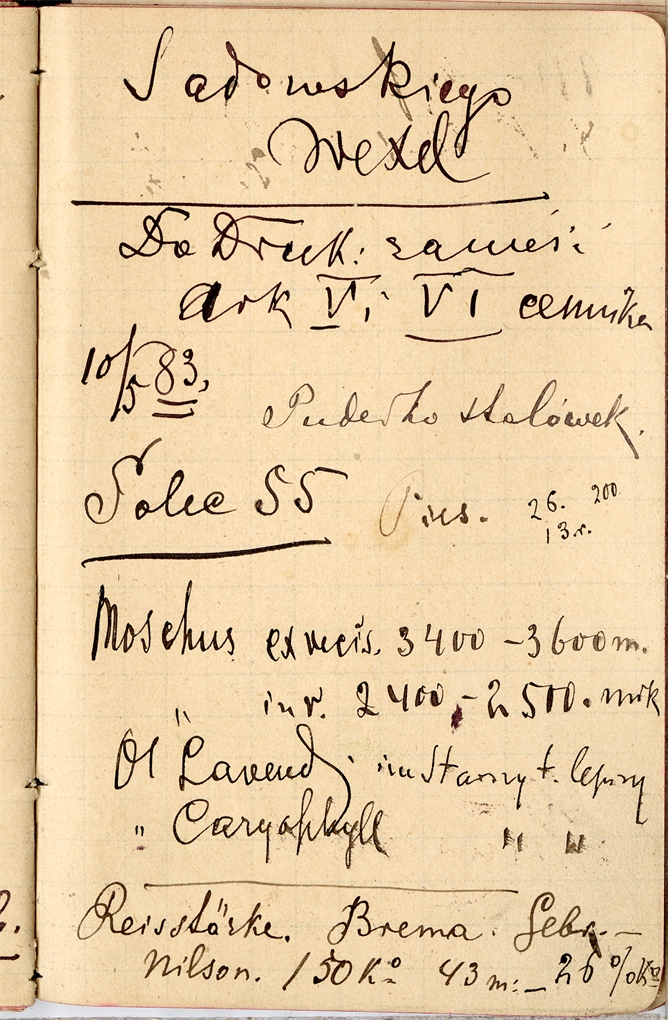 Sadowskiego
Wexel
Do Druk: zanieść
Ark V i VI cennika
10/5 83.
Pudełko stalówek.
Solec 55
Pius. 26. 200
13.r.
Moschus ex vecis. 3400 – 3600 m.
" in v. 2400, – 2500. mrk
Ol Lavend. im starszy t. lepszy
" Caryophyll " "
Reisstärke. Brema. Gebr. –
Nilson. 150 Ko 43 m: – 26 % Ko